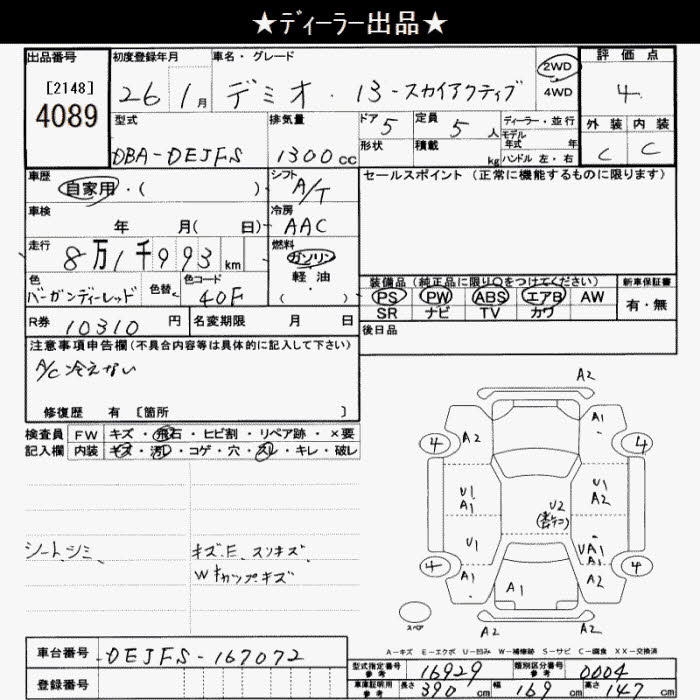 ★ディーラー出品★
出品番号 初度登録年月 車名・グレード 評価点
[2148] 26 1月 デミオ・13-スカイアクティブ 2WD 4WD 4
4089
型式 排気量 ドア 5 定員 5人 ディーラー・並行 外装 内装
モデル年式 年
DBA-DEJFS 1300cc 形状 積載 kg ハンドル 左・右 C C
車歴 シフト セールスポイント (正常に機能するものに限ります)
自家用・( ) A/T
車検 冷房
年 月( 日) AAC
走行 燃料
8万1千993km ガソリン
色 色替 色コード 軽油 装備品 (純正品に限り○をつけてください) 新車保証書
バーガンディーレッド 40F ( ) PS PW ABS エアB AW 有・無
SR ナビ TV カワ
R券 10310円 名変期限 月 日 後日品
注意事項申告欄(不具合内容等は具体的に記入して下さい)
A/C冷えない
修復歴 有 [箇所 ]
検査員 FW キズ・飛石・ヒビ割・リペア跡・×要
記入欄 内装 キズ・汚レ・コゲ・穴・スレ・キレ・破レ
シートシミ キズE、スリキズ
Wキャップキズ
A2
A1
A2
4 4
U1 U1
A1 A2
U2
U1 UA1
A1
4 4
A1 A1 A2
A2 A2
スペア
A-キズ E-エクボ U-凹み W-補修跡 S-サビ C-腐食 XX-交換済
車台番号 DEJFS-167072
型式指定番号 参考 16929 類別区分番号 参考 0004
登録番号
車庫証明用 参考 長さ 390cm 幅 169cm 高さ 147cm